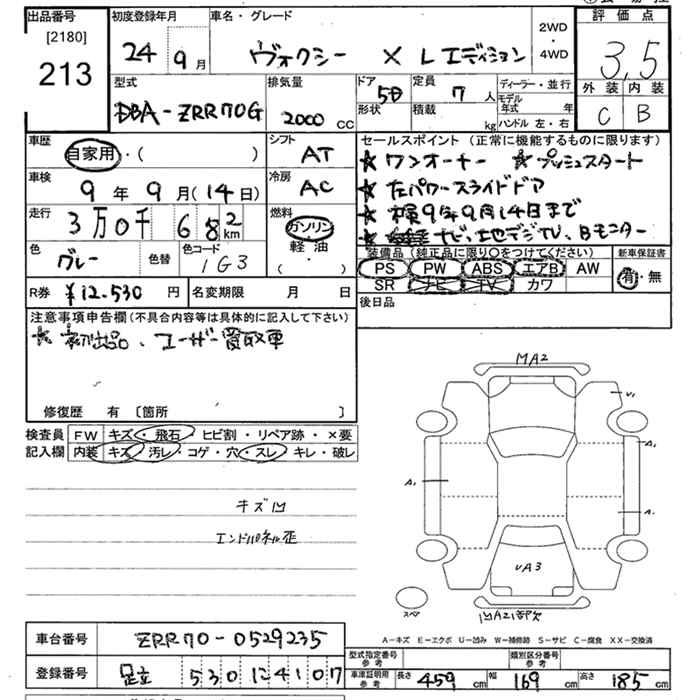 出品番号
[2180]
213
初度登録年月
24 9月
車名・グレード
ヴォクシー X Lエディション
2WD
・
4WD
評価点
3,5
外装 内装
C B
型式
DBA-ZRR70G
排気量
2000 cc
ドア
5D
形状
定員
7 人
積載
kg
ディーラー・並行
モデル年式 年
ハンドル 左・右
車歴
自家用・( )
シフト
AT
車検
9年9月(14日)
冷房
AC
走行
3万0千682km
燃料
ガソリン
軽油
( ・ )
色
グレー
色替
色コード
1G3
R券 ¥12,530円
名変期限 月 日
セールスポイント(正常に機能するものに限ります)
★ワンオーナー ★プッシュスタート
★左パワースライドドア
★検9年9月14日まで
ナビ、地デジTV、Bモニター
装備品(純正品に限り○をつけてください)
新車保証書
PS PW ABS エアB AW
有・無
SR ナビ TV カワ
後日品
注意事項申告欄(不具合内容等は具体的に記入して下さい)
★初出品、ユーザー買取車
修復歴 有 〔箇所 〕
検査員記入欄
FW キズ・飛石・ヒビ割・リペア跡・×要
内装 キズ・汚レ・コゲ・穴・スレ・キレ・破レ
キズ凹
エンドパネル歪
MA2
V1
A1
A1
A1
UA3
スペア
A-キズ E-エクボ U-凹み W-補修跡 S-サビ C-腐食 XX-交換済
車台番号 ZRR70-0529235
登録番号 足立 530 124107
型式指定番号 参考
類別区分番号 参考
車庫証明用参考 長さ 459cm 幅 169cm 高さ 185cm